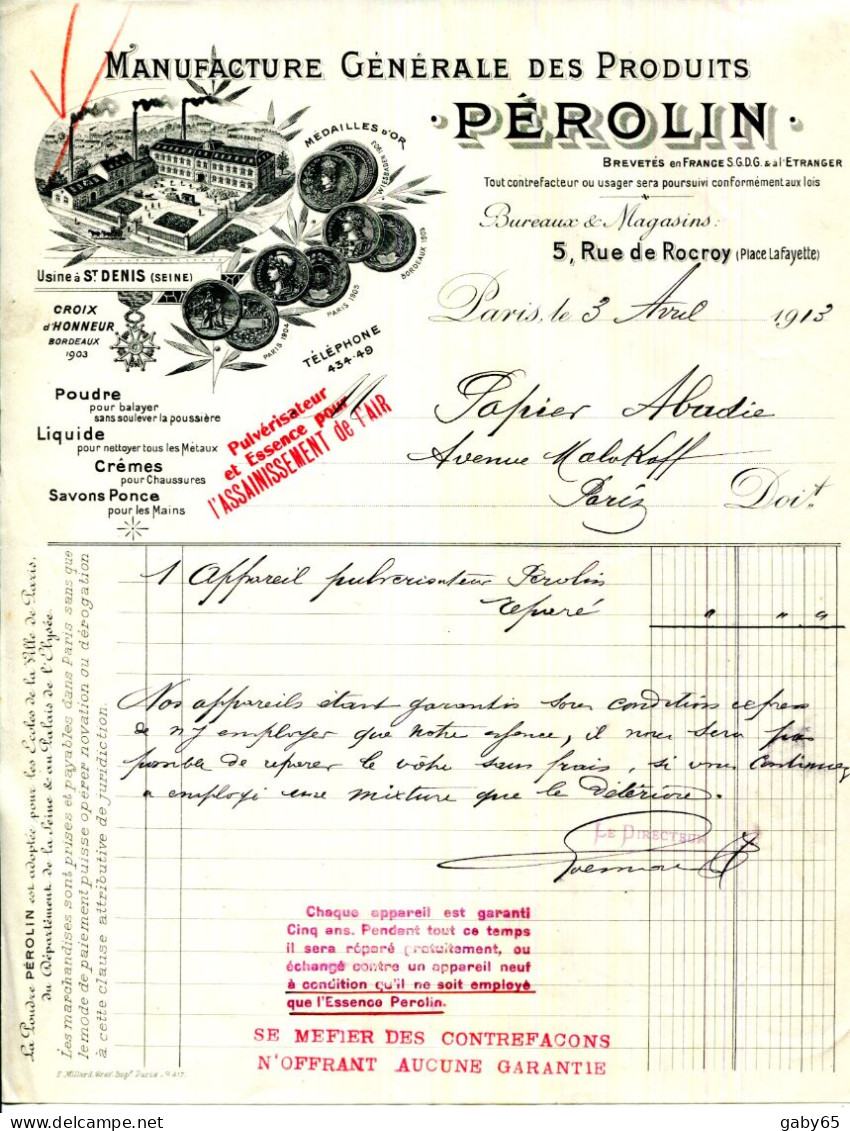 MANUFACTURE GÉNÉRALE DES PRODUITS
· PÉROLIN ·
BREVETÉS en FRANCE S.G.D.G. & à l'ETRANGER
Tout contrefacteur ou usager sera poursuivi conformément aux lois
Bureaux & Magasins:
5, Rue de Rocroy (Place Lafayette)
MÉDAILLES D'OR
WIESBADEN 1903
BORDEAUX 1903
PARIS 1903
PARIS 1904
Usine à ST DENIS (SEINE)
CROIX
d'HONNEUR
BORDEAUX
1903
TÉLÉPHONE
434-49
Paris, le 3 Avril 1913
Poudre
pour balayer
sans soulever la poussière
Liquide
pour nettoyer tous les Métaux
Crêmes
pour Chaussures
Savons Ponce
pour les Mains
Pulvérisateur
et Essence pour
l'ASSAINISSEMENT de l'AIR
M Papier Abadie
Avenue Malakoff
Paris Doit
1 Appareil pulverisateur Perolin
reparé " " "
Nos appareils étant garantis sous condition expres
de n'y employer que notre essence, il nous sera pas
possible de reparer le vôtre sans frais, si vous continuez
a employé une mixture que le déteriore.
LE DIRECTEUR
Chaque appareil est garanti
Cinq ans. Pendant tout ce temps
il sera réparé gratuitement, ou
échangé contre un appareil neuf
à condition qu'il ne soit employé
que l'Essence Perolin.
SE MEFIER DES CONTREFACONS
N'OFFRANT AUCUNE GARANTIE
La Poudre PÉROLIN est adoptée pour les Ecoles de la Ville de Paris,
du Département de la Seine & au Palais de l'Elysée.
Les marchandises sont prises et payables dans Paris sans que
le mode de paiement puisse opérer novation ou dérogation
à cette clause attributive de juridiction.
F. Millard, Grav. Imp. Paris
gaby65